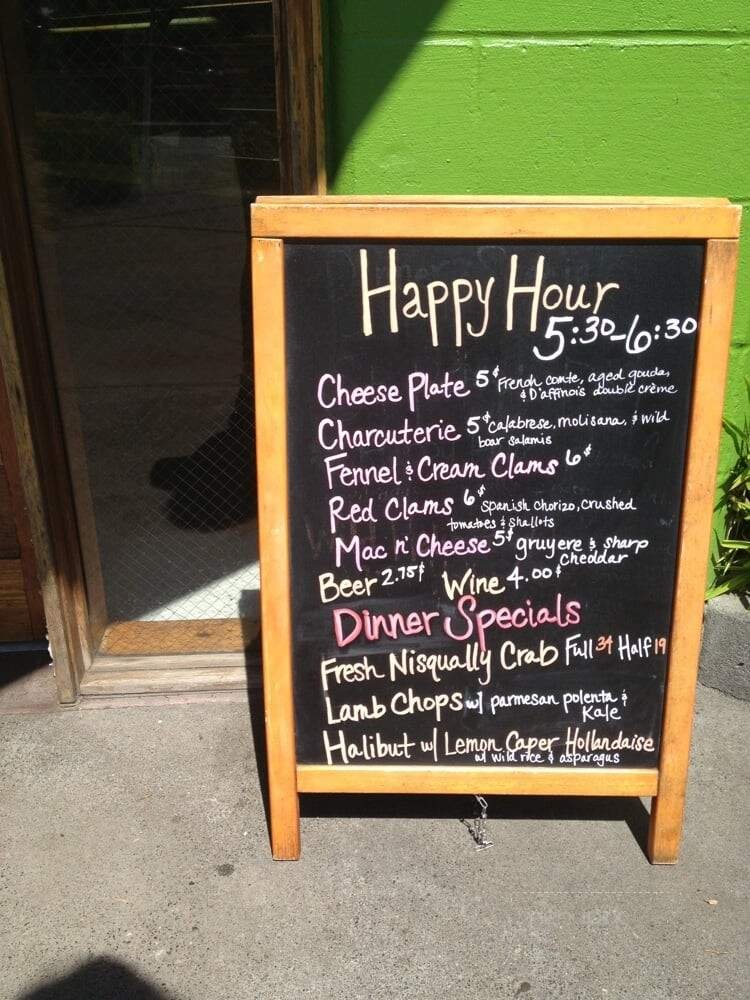 Happy Hour
5:30-6:30
Cheese Plate 5$ French comte, aged gouda,
& D'affinois double crème
Charcuterie 5$ calabrese, molisana, & wild
boar salamis
Fennel & Cream Clams 6$
Red Clams 6$ Spanish chorizo, crushed
tomatoes & shallots
Mac n' Cheese 5$ gruyere & sharp
cheddar
Beer 2.75$ Wine 4.00$
Dinner Specials
Fresh Nisqually Crab Full 34 Half 19
Lamb Chops w/ parmesan polenta &
Kale
Halibut w/ Lemon Caper Hollandaise
w/ wild rice & asparagus